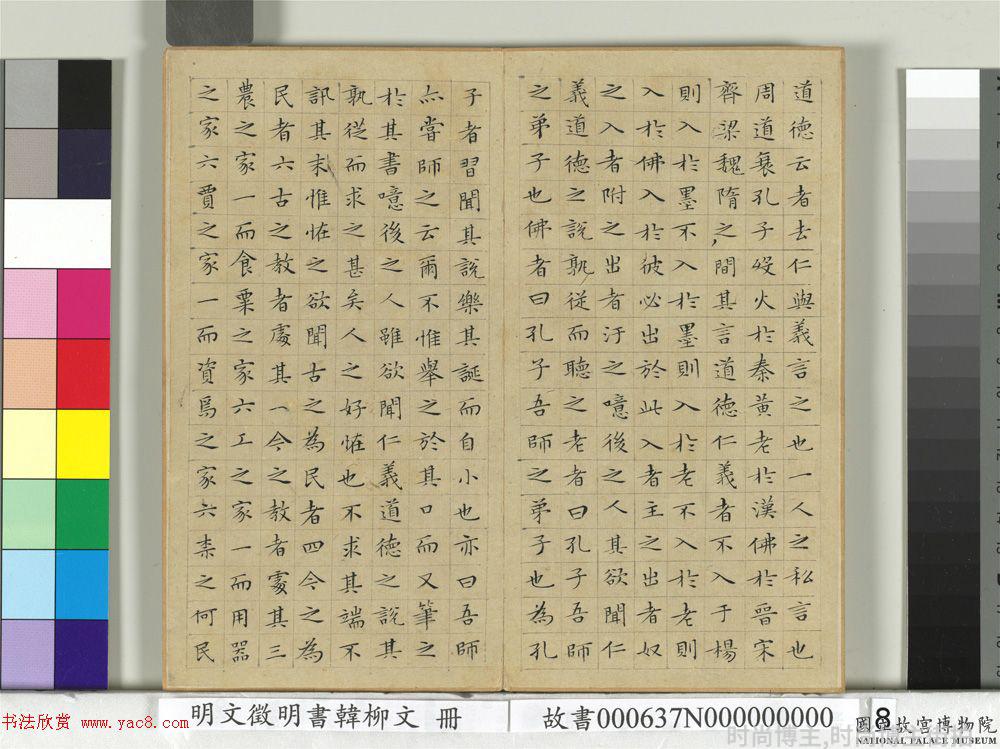 道德云者去仁與義言之也一人之私言也
周道衰孔子歿火於秦黃老於漢佛於晉宋
齊梁魏隋之間其言道德仁義者不入于楊
則入於墨不入於墨則入於老不入於老則
入於佛入於彼必出於此入者主之出者奴
之入者附之出者汙之噫後之人其欲聞仁
義道德之說孰從而聽之老者曰孔子吾師
之弟子也佛者曰孔子吾師之弟子也為孔
子者習聞其說樂其誕而自小也亦曰吾師
亦嘗師之云爾不惟舉之於其口而又筆之
於其書噫後之人雖欲聞仁義道德之說其
孰從而求之甚矣人之好恠也不求其端不
訊其末惟恠之欲聞古之為民者四今之為
民者六古之教者處其一今之教者處其三
農之家一而食粟之家六工之家一而用器
之家六賈之家一而資焉之家六柰之何民
明文徵明書韓柳文 冊
故書000637N000000000
8
书法欣赏 www.yac8.com
國立故宮博物院
NATIONAL PALACE MUSEUM